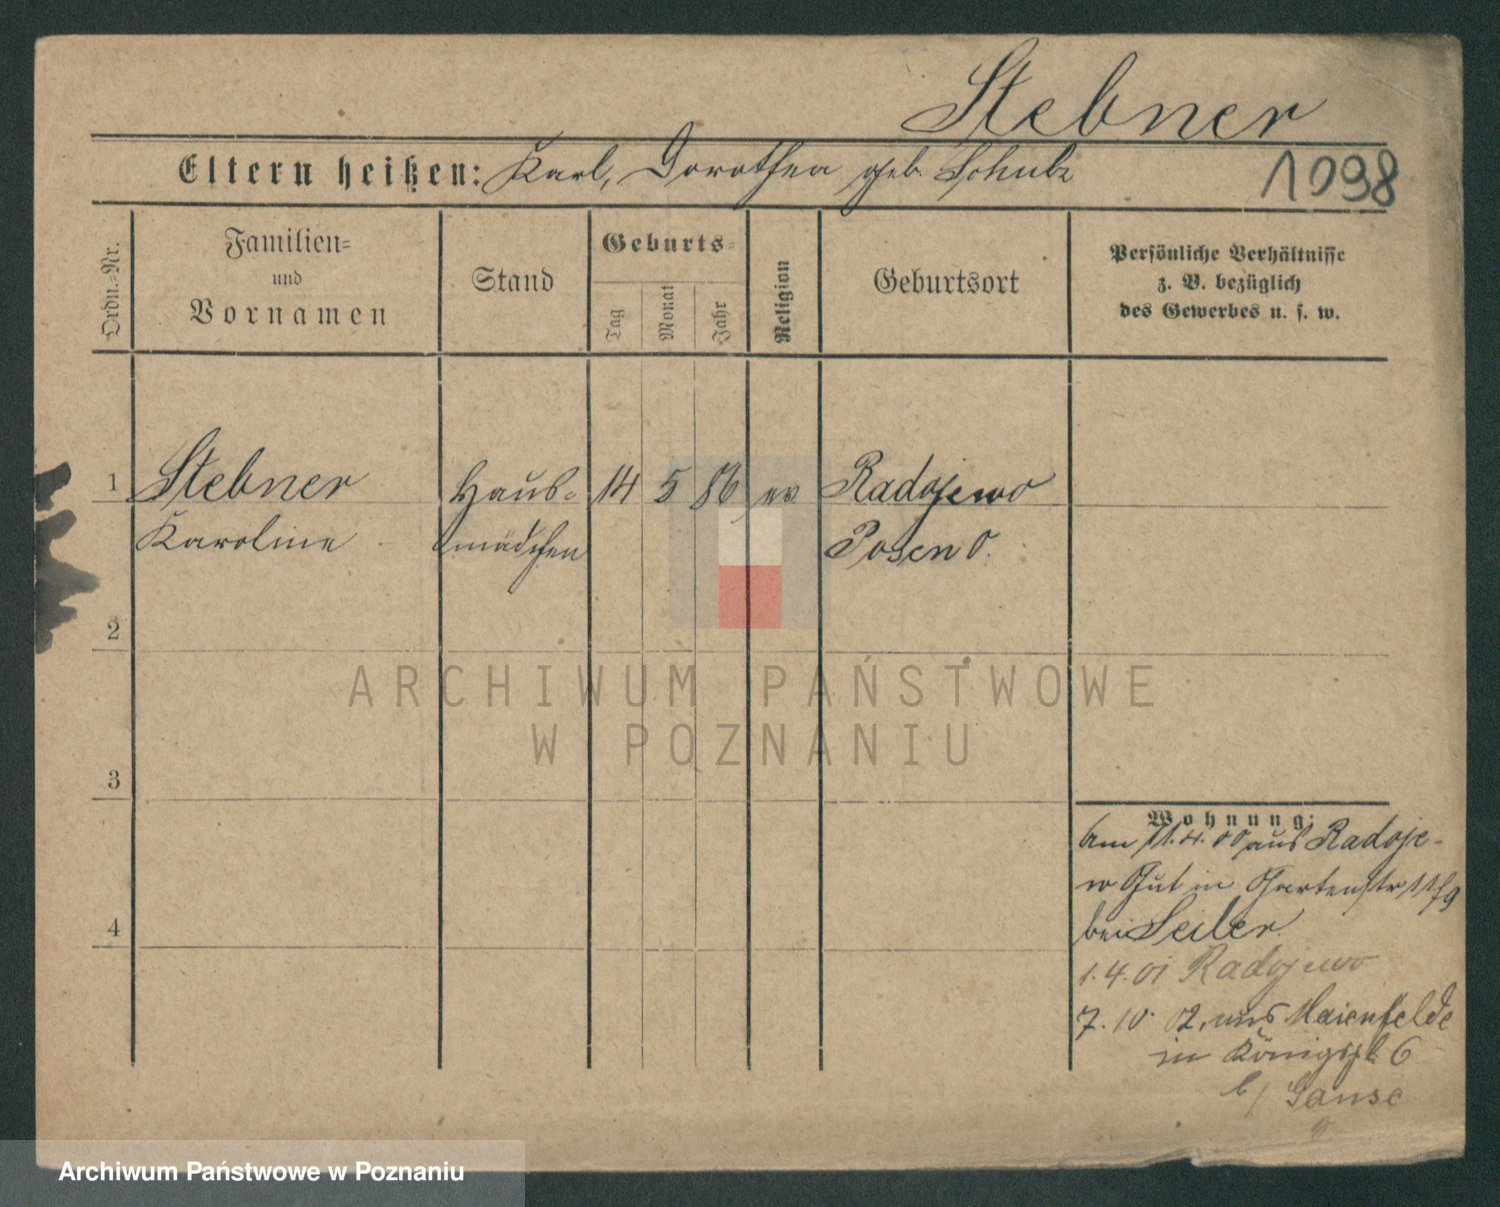 Stebner
Eltern heißen: Karl, Dorothea geb. Schulz
1098
Ordn.-Nr.
Familien-
und
Vornamen
Stand
Geburts-
Tag
Monat
Jahr
Religion
Geburtsort
Persönliche Verhältnisse
z. B. bezüglich
des Gewerbes u. s. w.
1 Stebner Haus- 14 5 86 ev Radojewo
Karoline mädchen Posen O.
2
3
4
Wohnung:
Am 11.4.00 aus Radoje-
w Gut in Gartenstr 11/9
bei Seiler
1.4.01 Radojewo
7.10. 02, aus Maienfelde
in Königspl. 6
b/ Ganse
ARCHIWUM PAŃSTWOWE
W POZNANIU
Archiwum Państwowe w Poznaniu